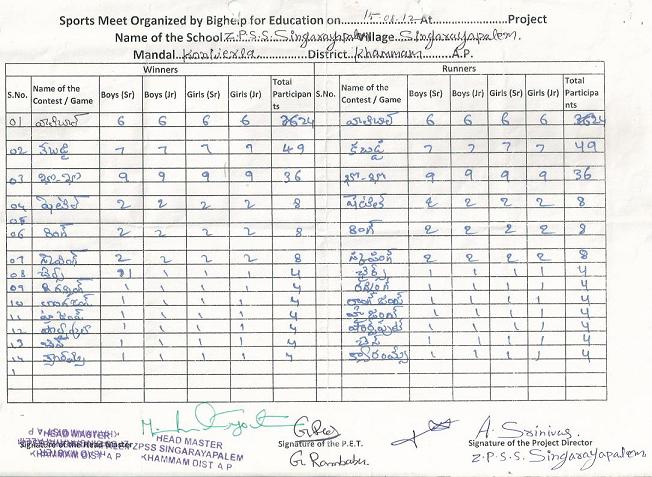 Sports Meet Organized by Bighelp for Education on...15.01.12.At..................Project
Name of the School Z.P.S.S. Singarayapalem Village Singarayapalem.
Mandal Konijerla District Khammam A.P.
Winners Runners
S.No. Name of the Contest / Game Boys (Sr) Boys (Jr) Girls (Sr) Girls (Jr) Total Participants S.No. Name of the Contest / Game Boys (Sr) Boys (Jr) Girls (Sr) Girls (Jr) Total Participants
01 వాలీబాల్ 6 6 6 6 24 వాలీబాల్ 6 6 6 6 24
02 కబడ్డి 7 7 7 7 49 కబడ్డి 7 7 7 7 49
03 ఖో-ఖో 9 9 9 9 36 ఖో-ఖో 9 9 9 9 36
04 2 2 2 2 8 2 2 2 2 8
05
06 రింగ్ 2 2 2 2 8 రింగ్ 2 2 2 2 8
07 2 2 2 2 8 2 2 2 2 8
08 చైర్స్ 1 1 1 1 4 చైర్స్ 1 1 1 1 4
09 1 1 1 1 4 రన్నింగ్ 1 1 1 1 4
10 లాంగ్ జంప్ 1 1 1 1 4 లాంగ్ జంప్ 1 1 1 1 4
11 హై జంప్ 1 1 1 1 4 హై జంప్ 1 1 1 1 4
12 1 1 1 1 4 షార్ట్‌పుట్ 1 1 1 1 4
13 చెస్ 1 1 1 1 4 చెస్ 1 1 1 1 4
14 క్యారమ్స్ 1 1 1 1 4 క్యారమ్స్ 1 1 1 1 4
1
HEAD MASTER
Signature of the Head Master
KHAMMAM DIST A P
HEAD MASTER
ZPSS SINGARAYAPALEM
KHAMMAM DIST A P
Signature of the P.E.T.
G. Rambabu.
A. Srinivas.
Signature of the Project Director
Z.P.S.S. Singarayapalem.